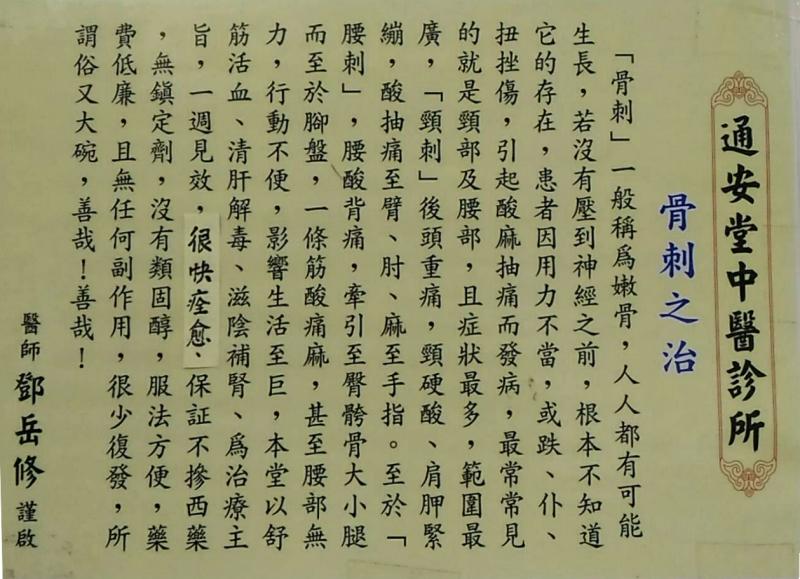 通安堂中醫診所
骨刺之治
「骨刺」一般稱爲嫩骨，人人都有可能
生長，若沒有壓到神經之前，根本不知道
它的存在，患者因用力不當，或跌、仆、
扭挫傷，引起酸麻抽痛而發病，最常常見
的就是頸部及腰部，且症狀最多，範圍最
廣，「頸刺」後頭重痛，頸硬酸、肩胛緊
繃，酸抽痛至臂、肘、麻至手指。至於「
腰刺」，腰酸背痛，牽引至臀骻骨大小腿
而至於腳盤，一條筋酸痛麻，甚至腰部無
力，行動不便，影響生活至巨，本堂以舒
筋活血、清肝解毒、滋陰補腎、爲治療主
旨，一週見效，很快痊愈、保証不摻西藥
，無鎮定劑，沒有類固醇，服法方便，藥
費低廉，且無任何副作用，很少復發，所
謂俗又大碗，善哉！善哉！
醫師 鄧岳修 謹啟